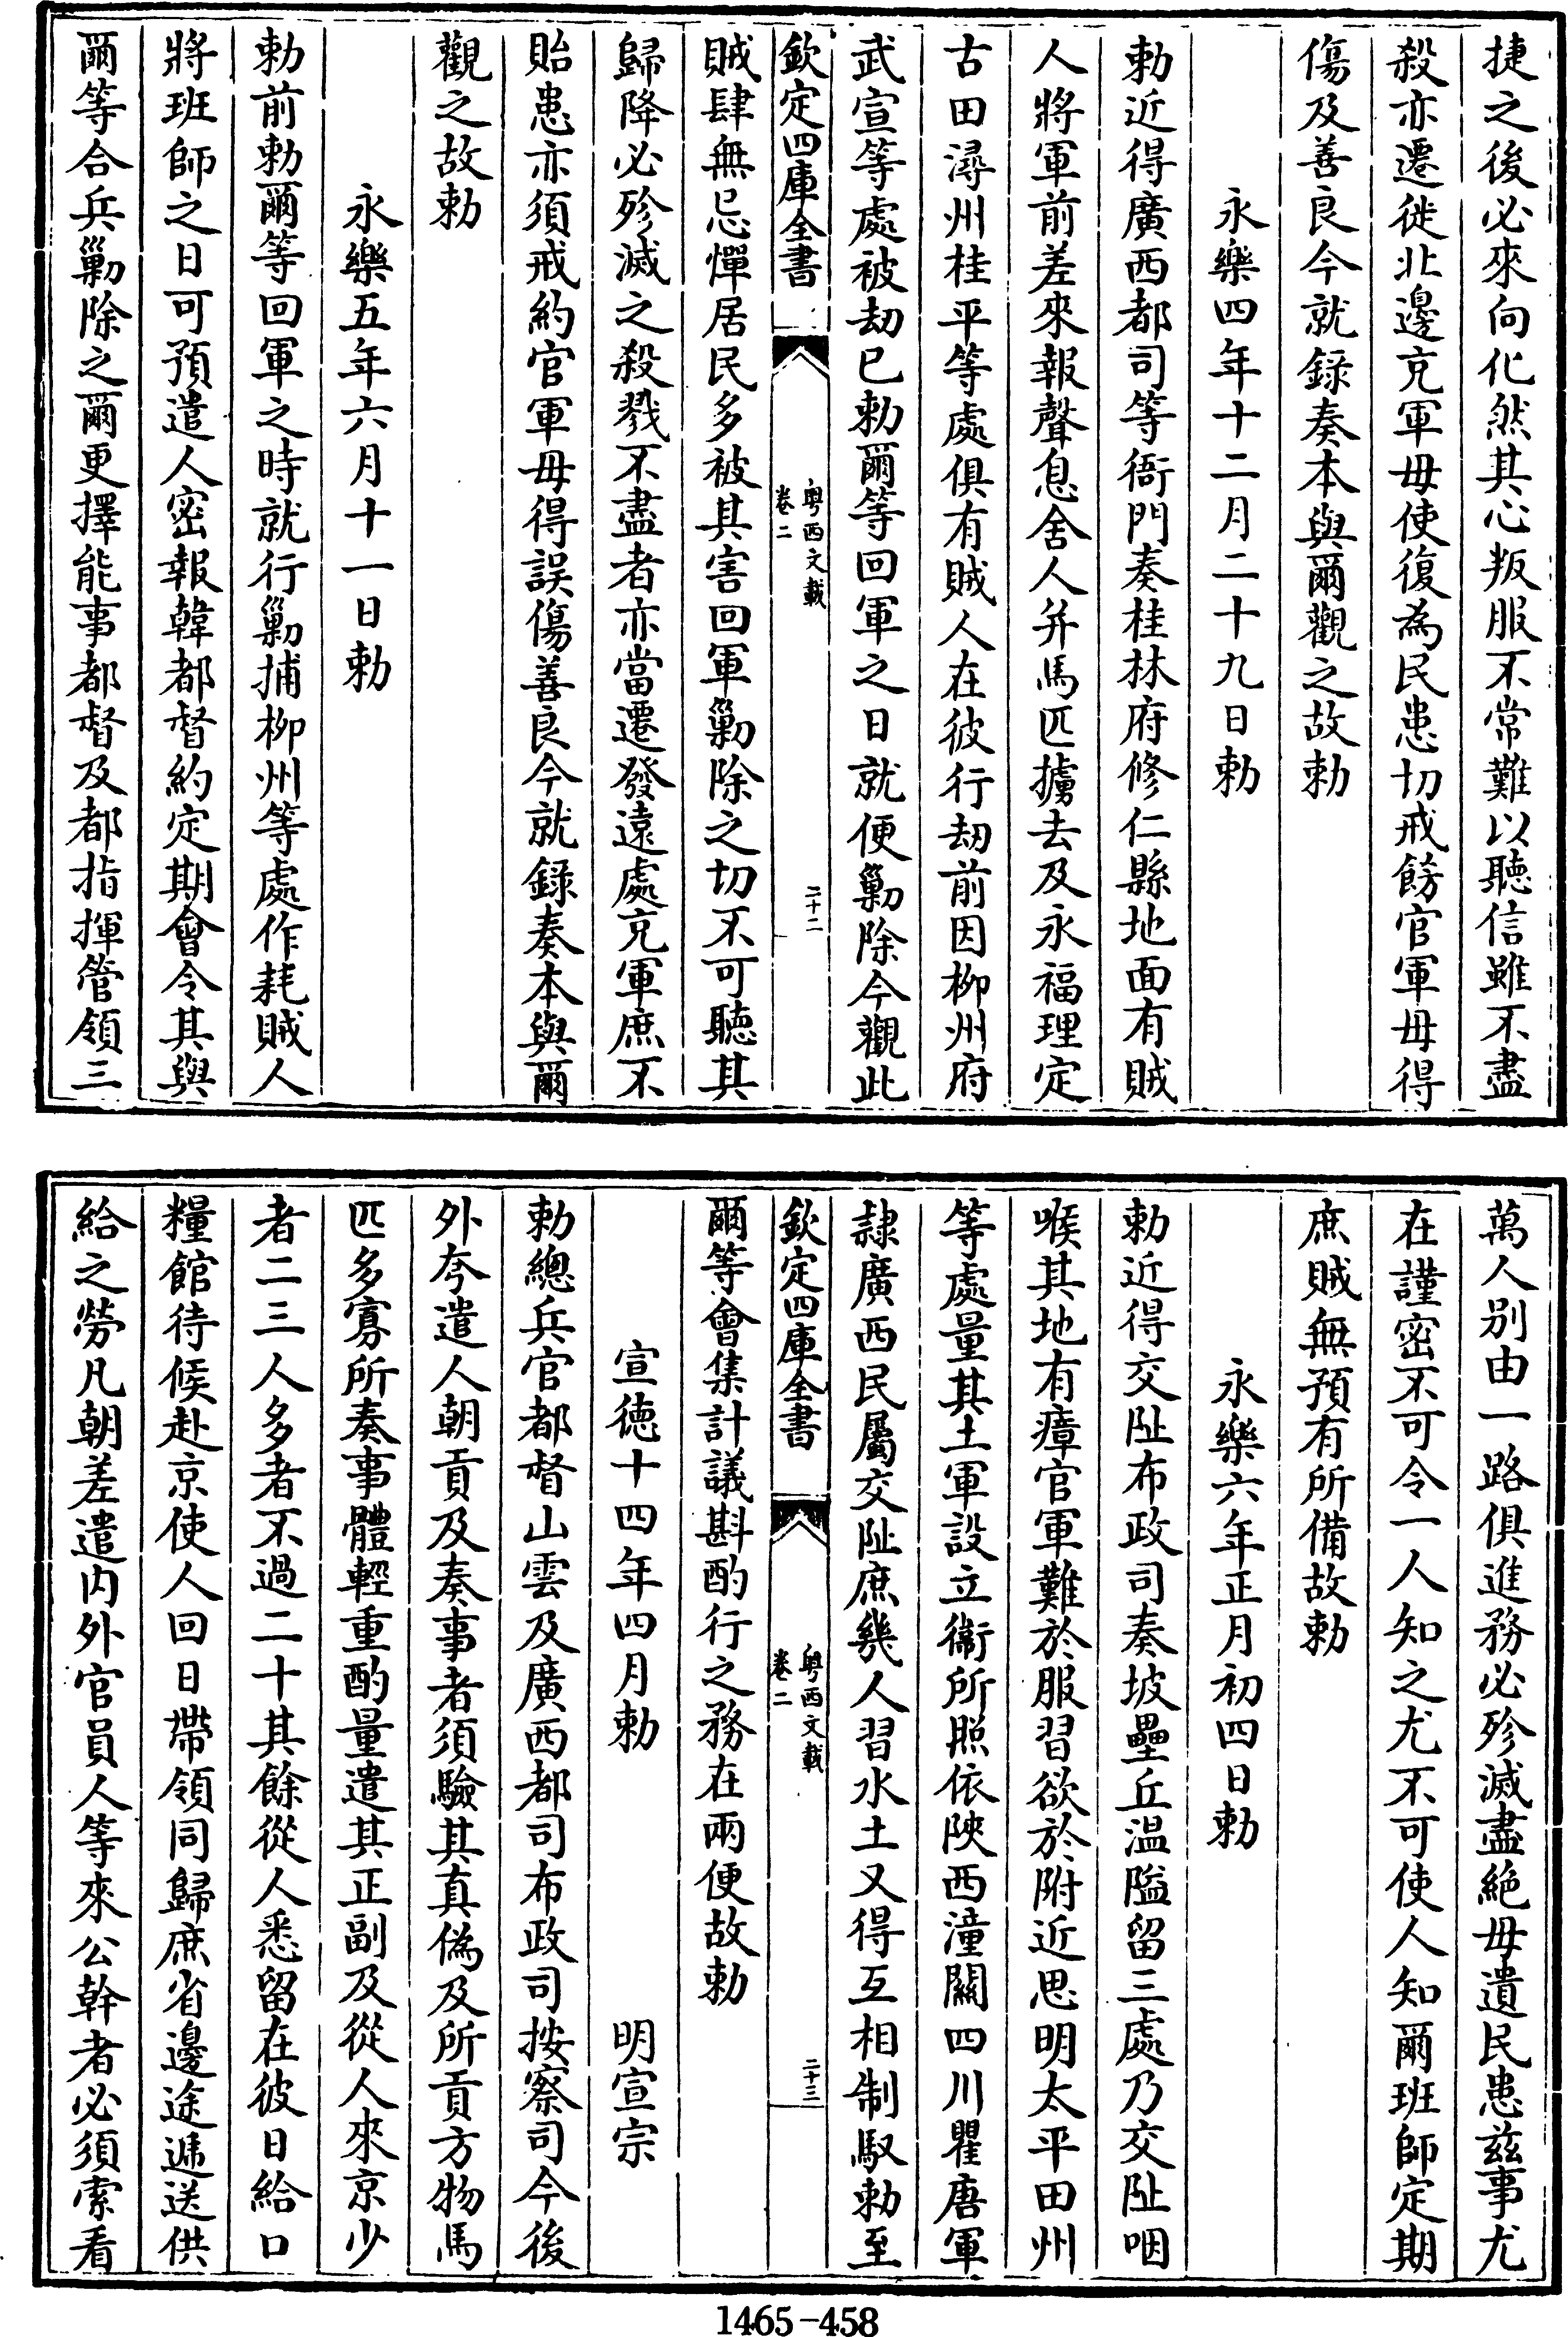 捷之後必來向化然其心叛服不常難以聽信雖不盡
殺亦遷徙北邊充軍毋使復為民患切戒飭官軍毋得
傷及善良今就錄奏本與爾觀之故勅
永樂四年十二月二十九日勅
勅近得廣西都司等衙門奏桂林府修仁縣地面有賊
人將軍前差來報聲息舍人并馬匹擄去及永福理定
古田潯州桂平等處俱有賊人在彼行刼前因柳州府
武宣等處被刼已勅爾等回軍之日就便勦除今觀此
欽定四庫全書
粤西文載
卷二
二十二
賊肆無忌憚居民多被其害回軍勦除之切不可聽其
歸降必殄滅之殺戮不盡者亦當遷發遠處充軍庶不
貽患亦須戒約官軍毋得誤傷善良今就錄奏本與爾
觀之故勅
永樂五年六月十一日勅
勅前勅爾等回軍之時就行勦捕柳州等處作耗賊人
將班師之日可預遣人密報韓都督約定期會令其與
爾等合兵勦除之爾更擇能事都督及都指揮管領三
萬人别由一路俱進務必殄滅盡絶毋遺民患兹事尤
在謹密不可令一人知之尤不可使人知爾班師定期
庶賊無預有所備故勅
永樂六年正月初四日勅
勅近得交阯布政司奏坡壘丘温隘留三處乃交阯咽
喉其地有瘴官軍難於服習欲於附近思明太平田州
等處量其土軍設立衛所照依陜西潼關四川瞿唐軍
隷廣西民屬交阯庶幾人習水土又得互相制馭勅至
欽定四庫全書
粤西文載
卷二
二十三
爾等會集計議斟酌行之務在兩便故勅
宣徳十四年四月勅 明宣宗
勅總兵官都督山雲及廣西都司布政司按察司今後
外夸遣人朝貢及奏事者須驗其真偽及所貢方物馬
匹多寡所奏事體輕重酌量遣其正副及從人來京少
者二三人多者不過二十其餘從人悉留在彼日給口
糧館待候赴京使人回日帶領同歸庶省邊途遞送供
給之勞凡朝差遣内外官員人等來公幹者必須索看
1465-458